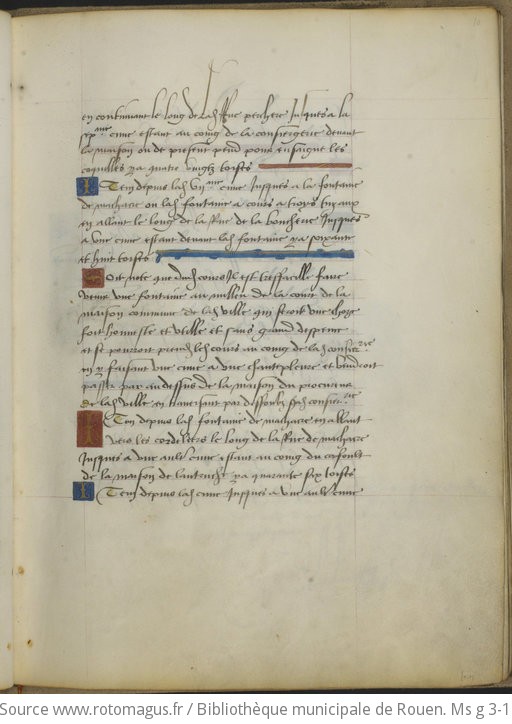 en continuant le long de lad rue perchere Jusques a la
sepme cuve estant au coing de la consiergerie devant
la maison ou de present pend pour ensaigne les
coquilles ya quatre vingtz toises
Item depuis lad viime cuve Jusques a la fontaine
de machacre ou lad fontaine a cours a troys tuyaux
en allant le long de la Rue de la boucherie Jusques
a une cuve estant devant lad fontaine ya soixante
et huit toises
soit note que dud cours Il est bes facille faire
venir une fontaine au millieu de la court de la
maison commune de lad ville qui seroit une chose
fort honneste et utille et sans grand despence
et se pourroit prendre led cours au coing de la d consierrie
en y faisant une cuve a une chantepleure et viendroit
passer par au dessus de la maison du procureur
de lad ville en traversant par dessoubz lad consierie
Item depuis lad fontaine de machacre en allant
vers les cordeliers le long de la Rue de machacre
Jusques a une aultre cuve estant au coing du
de la maison de ya quarante six toises
Item depuis lad cuve Jusques a une aultre cuve
Source www.rotomagus.fr / Bibliothèque municipale de Rouen. Ms g 3-1